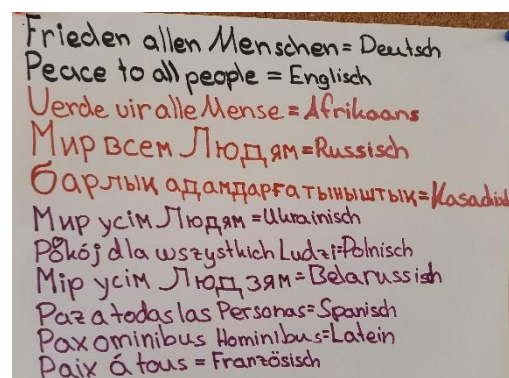 Frieden allen Menschen = Deutsch
Peace to all people = Englisch
Uerde vir alle Mense = Afrikaans
Мир всем Людям = Russisch
барлық адамдарға тыныштық =
Мир усім Людям = Ukrainisch
Pokój dla wszystkich Ludzi = Polnisch
Мір усім Людзям = Belarussisch
Paz a todas las Personas = Spanisch
Pax ominibus Hominibus = Latein
Paix á tous = Französisch